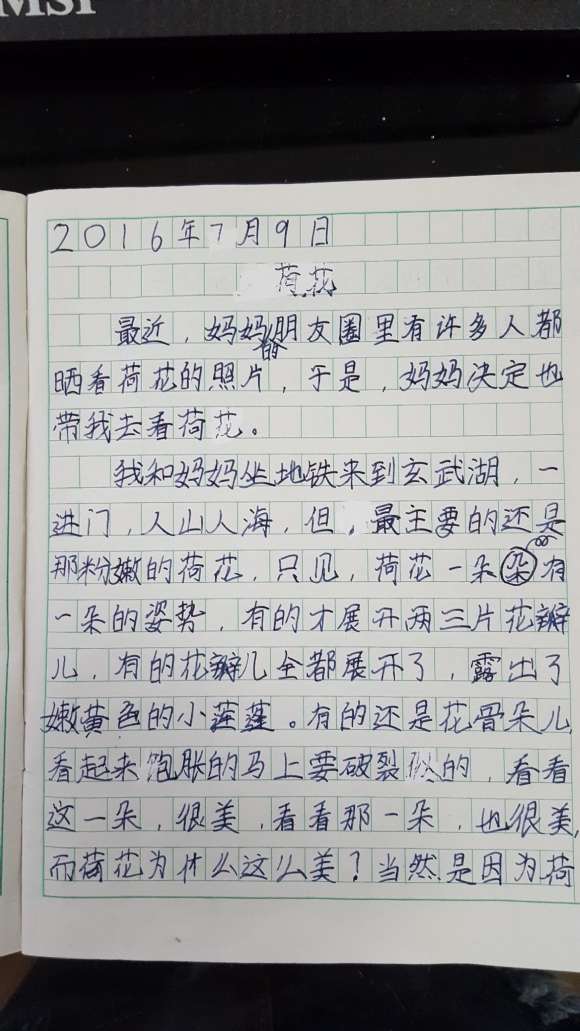 MSI
2016年7月9日
荷花
最近，妈妈的朋友圈里有许多人都
晒看荷花的照片，于是，妈妈决定也
带我去看荷花。
我和妈妈坐地铁来到玄武湖，一
进门，人山人海，但，最主要的还是
那粉嫩的荷花，只见，荷花一朵朵有
一朵的姿势，有的才展开两三片花瓣
儿，有的花瓣儿全都展开了，露出了
嫩黄色的小莲蓬。有的还是花骨朵儿，
看起来饱胀的马上要破裂似的，看看
这一朵，很美，看看那一朵，也很美，
而荷花为什么这么美？当然是因为荷